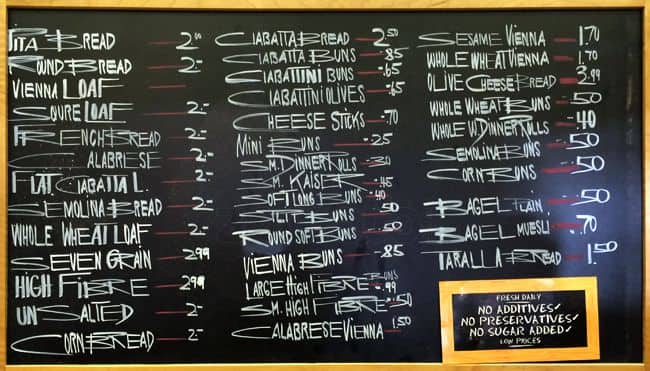 Pita Bread 2.00
Round Bread 2.-
Vienna Loaf
Soure Loaf 2.-
French Bread 2.-
Calabriese 2.-
Flat Ciabatta L. 2.-
Semolina Bread 2.-
Whole Wheat Loaf 2-
Seven Grain 2.99
High Fibre 2.99
Un Salted 2-
Corn Bread 2-
Ciabatta Bread 2.50
Ciabatta Buns .85
Ciabattini Buns .65
Ciabattini Olives .65
Cheese Sticks .70
Mini Buns .25
Sm. Dinner Rolls .30
Sm. Kaiser .45
Soft Long Buns .40
Split Buns
Round Soft Buns .50
Vienna Buns .85
Large High Fibre Buns .99
Sm. High Fibre .50
Calabrese Vienna 1.50
Sesame Vienna 1.70
Whole Wheat Vienna 1.70
Olive Cheese Bread 3.99
Whole Wheat Buns .50
Whole W. Dinner Rolls .40
Semolina Buns .50
Corn Buns .50
Bagel Plain .50
Bagel Muesli .70
Taralla Bread 1.50
Fresh Daily
No Additives
No Preservatives
No Sugar Added
Low Prices